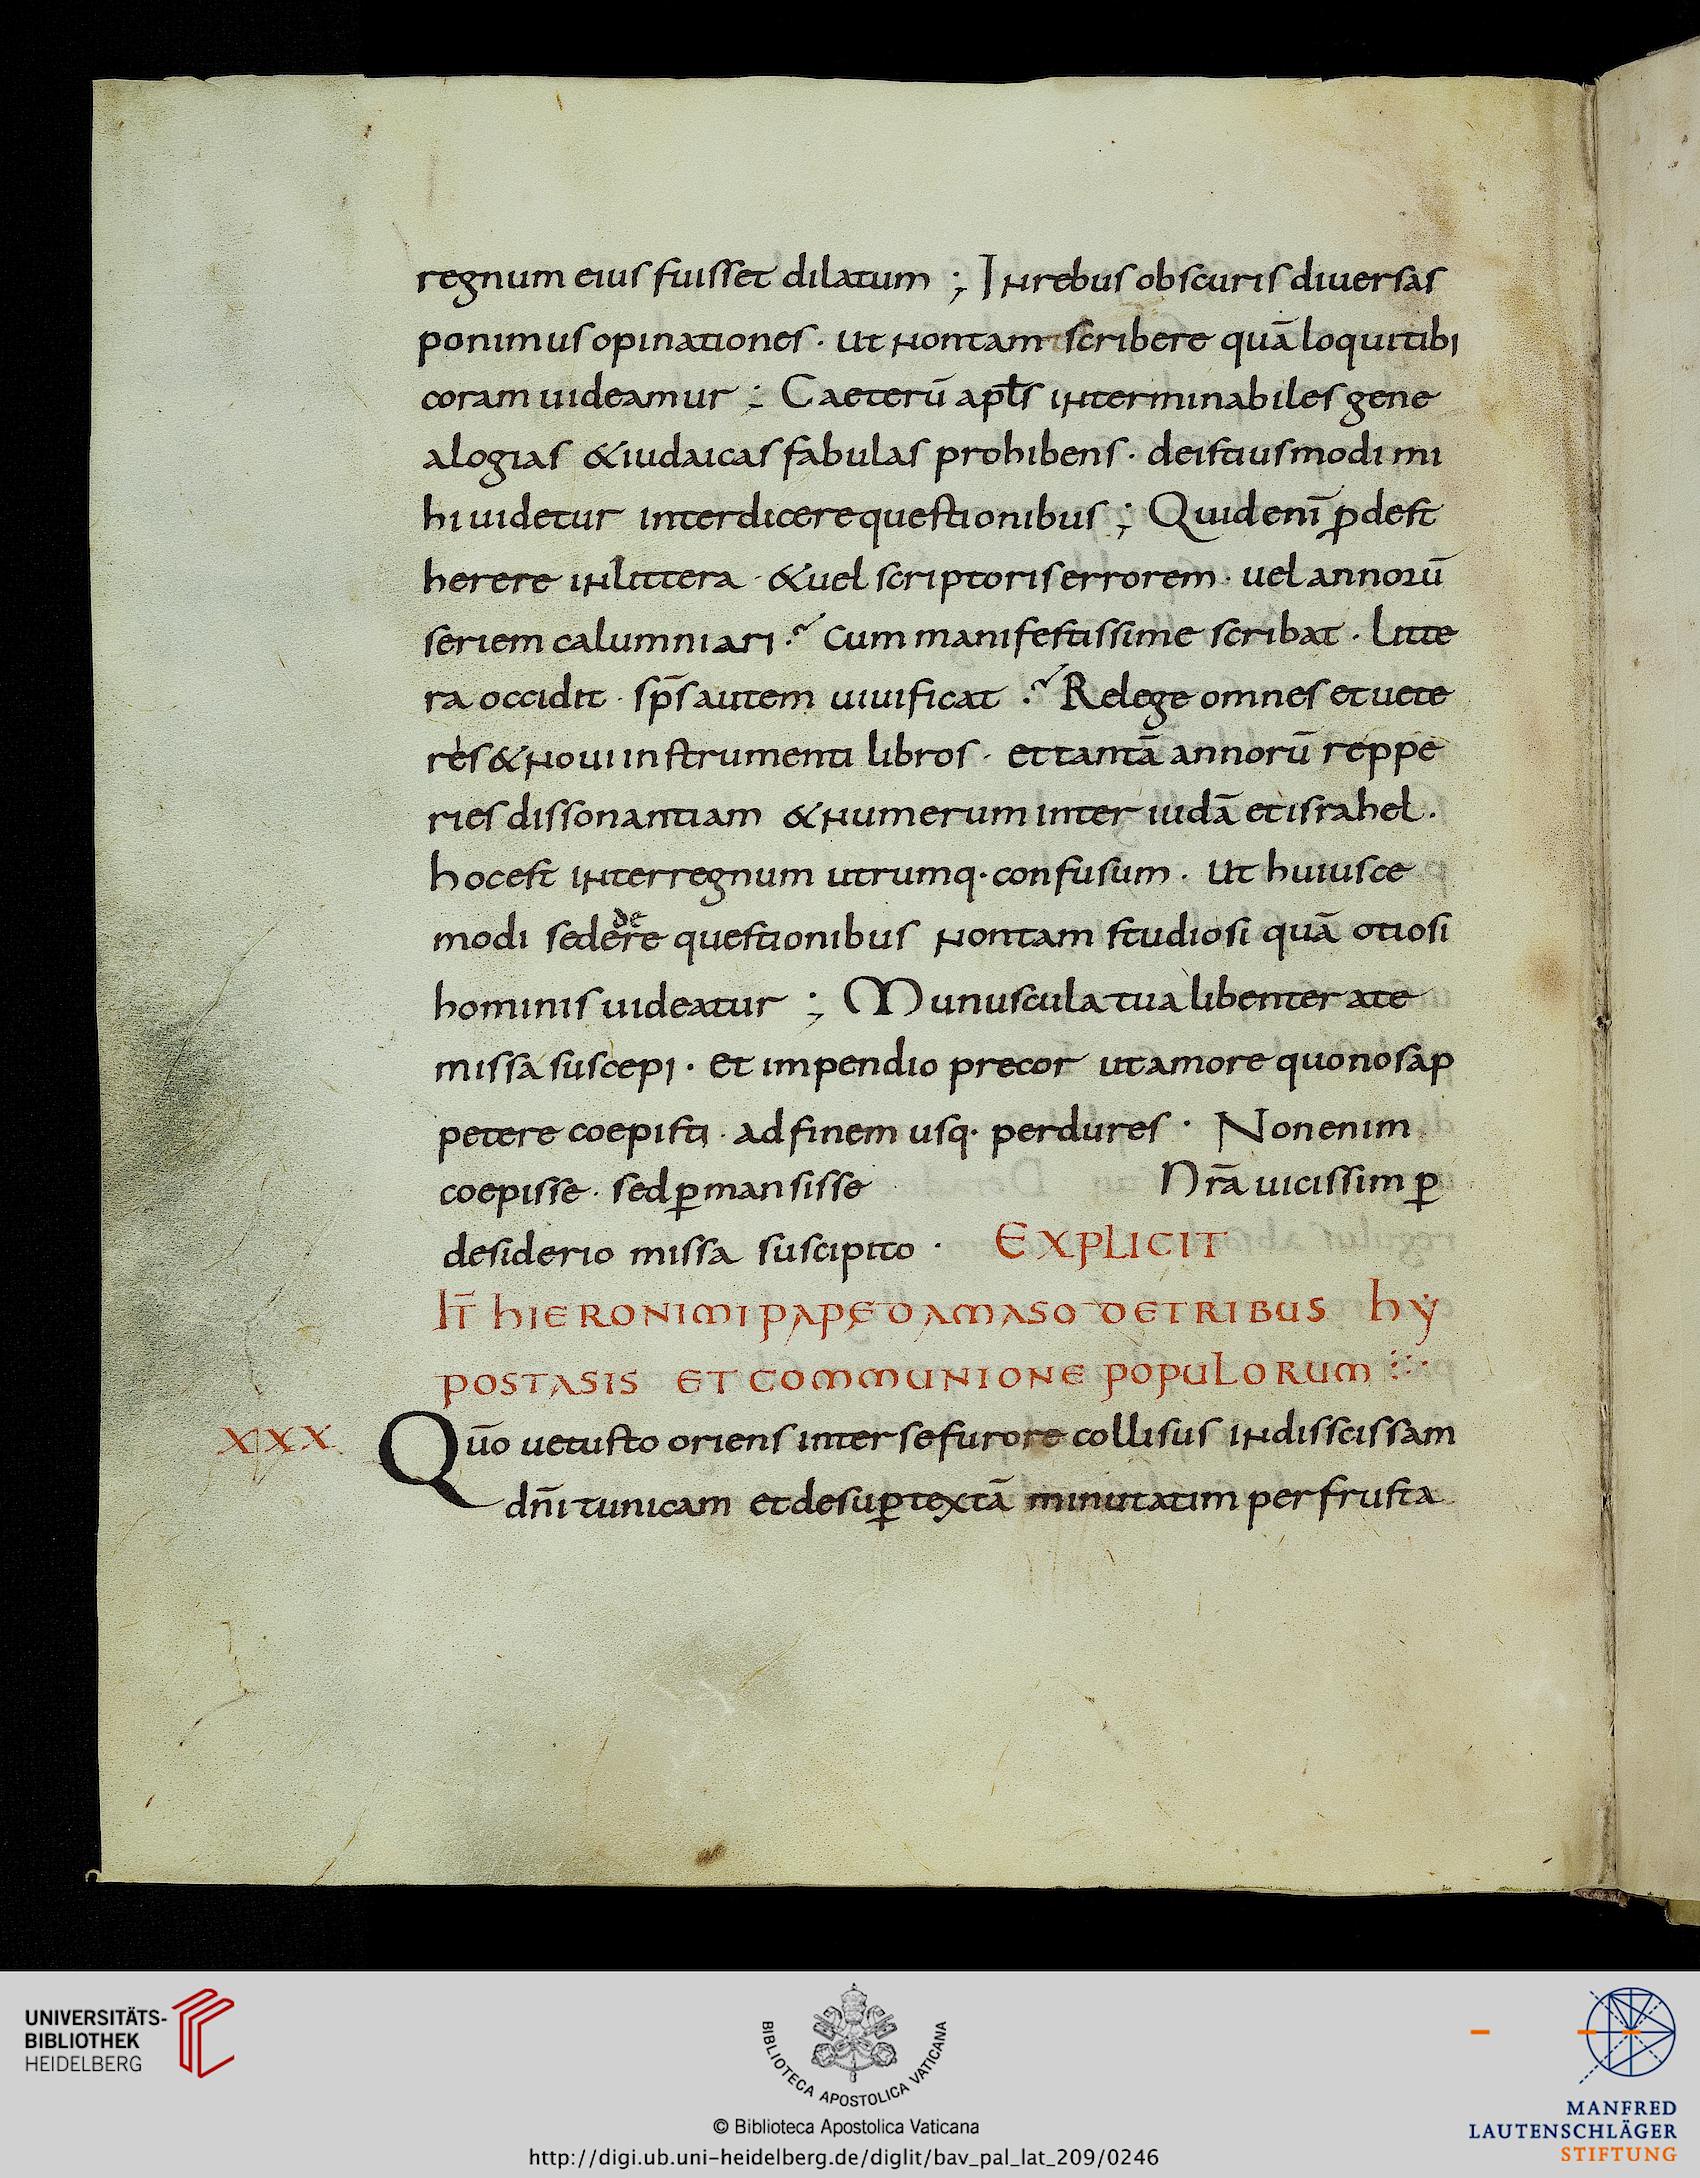 regnum eius fuisset dilatum ; In rebus obscuris diuersas
ponimus opinationes · ut non tam scribere quā loqui tibi
coram uideamur ; Caeterū apłs interminabiles gene
alogias & iudaicas fabulas prohibens · de istiusmodi mi
hi uidetur interdicere questionibus ; Quid enī ꝓdest
herere in littera · & uel scriptoris errorem · uel annorū
seriem calumniari ·? Cum manifestissime scribat · Litte
ra occidit · sp̄s autem uiuificat ·? Relege omnes et uete
res & noui instrumenti libros · et tantā annorū reppe
ries dissonantiam & numerum inter iudā et israhel ·
hoc est inter regnum utrumq· confusum · ut huiusce
de
modi sedere questionibus non tam studiosi quā otiosi
hominis uideatur ; Munuscula tua libenter a te
missa suscepi · et impendio precor ut amore quo nos ap
petere coepisti · ad finem usq· perdures · Non enim
coepisse · sed ꝑmansisse Nr̄a uicissim ꝑ
desiderio missa suscipito · EXPLICIT
IT̄ HIERONIMI PAPĘ DAMASO DE TRIBUS HY
POSTASIS ET COMMUNIONE POPULORUM
XXX Qūo uetusto oriens inter se furore collisus indisscissam
dn̄i tunicam et desuꝑ textā minutatim per frusta
UNIVERSITÄTS-
BIBLIOTHEK
HEIDELBERG
BIBLIOTECA APOSTOLICA VATICANA
© Biblioteca Apostolica Vaticana
http://digi.ub.uni-heidelberg.de/diglit/bav_pal_lat_209/0246
MANFRED
LAUTENSCHLÄGER
STIFTUNG